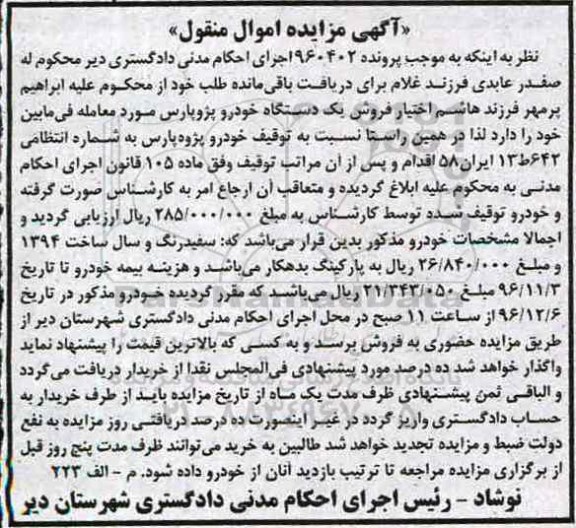 «آگهی مزایده اموال منقول»
نظر به اینکه به موجب پرونده ۹۶۰۴۰۲اجرای احکام مدنی دادگستری دیر محکوم له
صفدر عابدی فرزند غلام برای دریافت باقی‌مانده طلب خود از محکوم علیه ابراهیم
پرمهر فرزند هاشم اختیار فروش یک دستگاه خودرو پژوپارس مورد معامله فی‌مابین
خود را دارد لذا در همین راستا نسبت به توقیف خودرو پژوه‌پارس به شماره انتظامی
۶۴۲ط۱۳ ایران۵۸ اقدام و پس از آن مراتب توقیف وفق ماده ۱۰۵ قانون اجرای احکام
مدنی به محکوم علیه ابلاغ گردیده و متعاقب آن ارجاع امر به کارشناس صورت گرفته
و خودرو توقیف شدد توسط کارشناس به مبلغ ۲۸۵/۰۰۰/۰۰۰ ریال ارزیابی گردید و
اجمالا مشخصات خودرو مذکور بدین قرار می‌باشد که: سفیدرنگ و سال ساخت ۱۳۹۴
و مبلغ ۲۶/۸۴۰/۰۰۰ ریال به پارکینگ بدهکار می‌باشد و هزینه بیمه خودرو تا تاریخ
۹۶/۱۱/۳ مبلغ ۲۱/۳۴۳/۰۵۰ ریال می‌باشد که مقرر گردیده خودرو مذکور در تاریخ
۹۶/۱۲/۶ از ساعت ۱۱ صبح در محل اجرای احکام مدنی دادگستری شهرستان دیر از
طریق مزایده حضوری به فروش برسد و به کسی که بالاترین قیمت را پیشنهاد نماید
واگذار خواهد شد ده درصد مورد پیشنهادی فی‌المجلس نقدا از خریدار دریافت می‌گردد
و الباقی ثمن پیشنهادی ظرف مدت یک ماه از تاریخ مزایده باید از طرف خریدار به
حساب دادگستری واریز گردد در غیر اینصورت ده درصد دریافتی روز مزایده به نفع
دولت ضبط و مزایده تجدید خواهد شد طالبین به خرید می‌توانند ظرف مدت پنج روز قبل
از برگزاری مزایده مراجعه تا ترتیب بازدید آنان از خودرو داده شود. م - الف ۲۲۳
نوشاد - رئیس اجرای احکام مدنی دادگستری شهرستان دیر